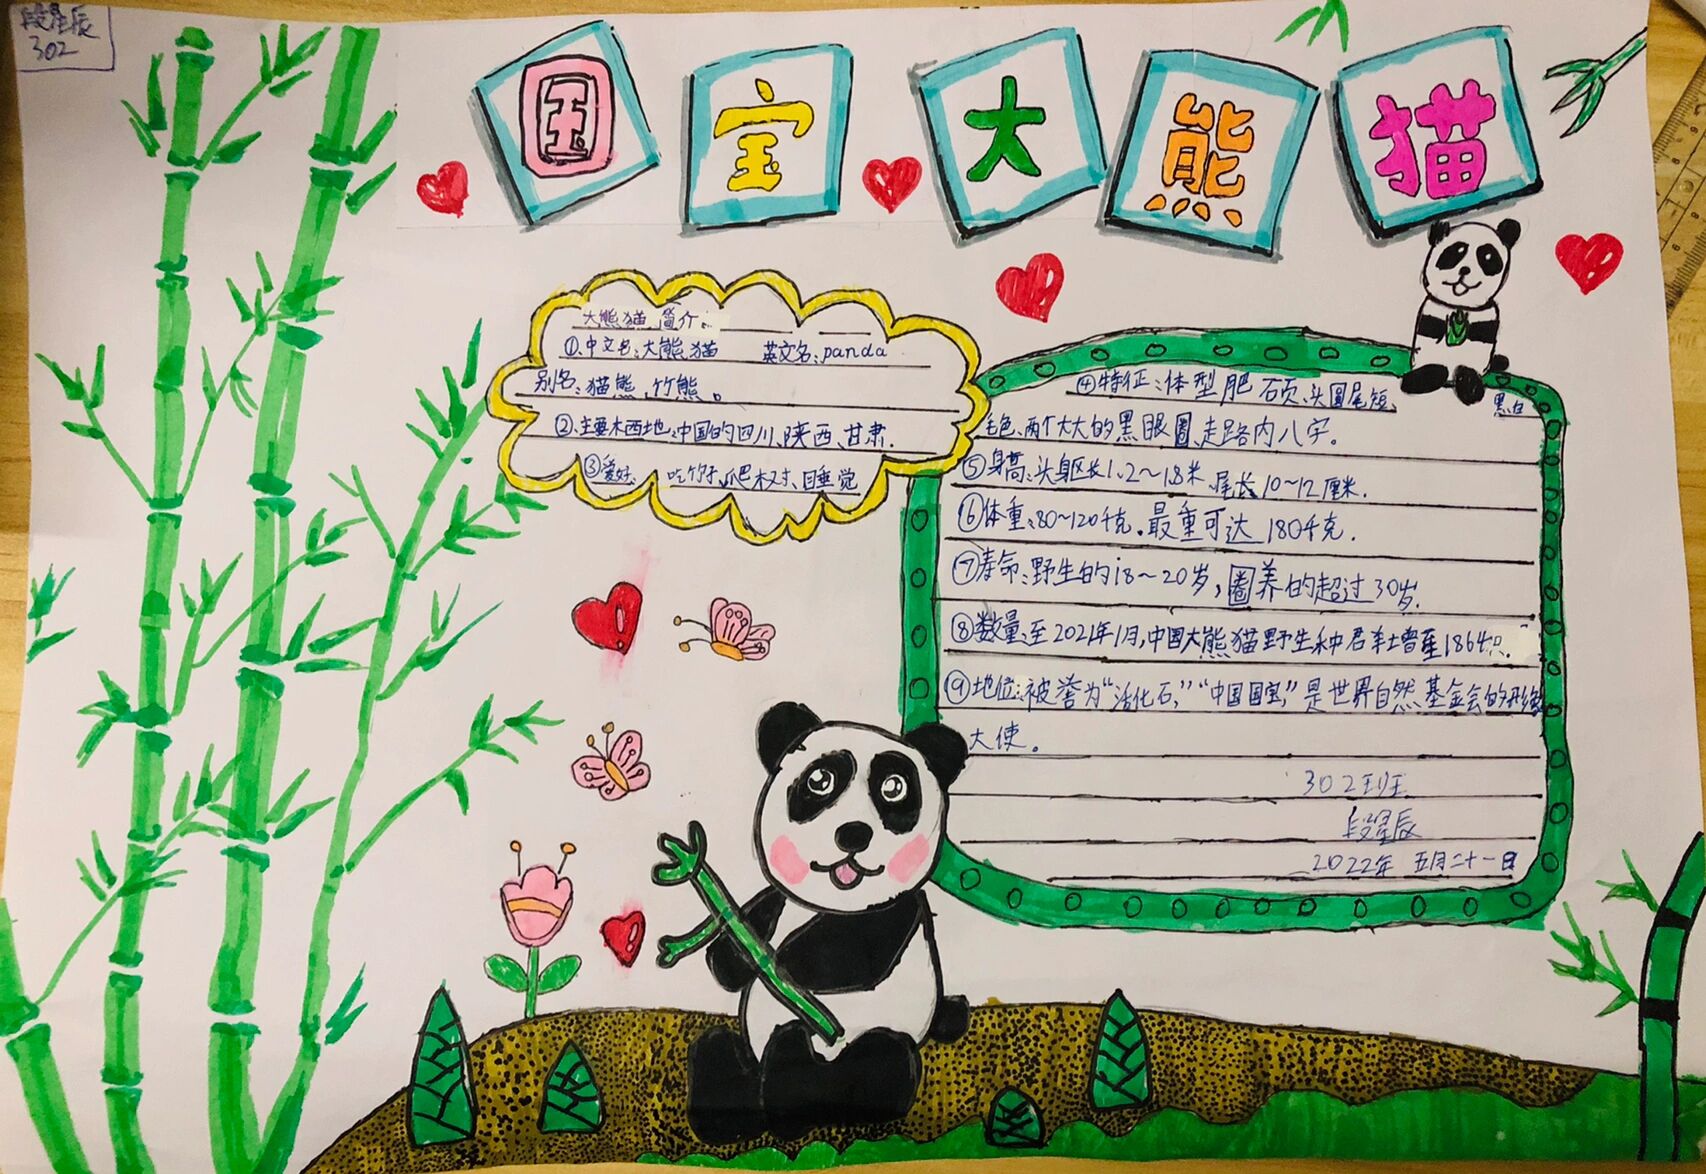 段星辰
302
国宝大熊猫
大熊猫简介:
①、中文名:大熊猫 英文名:panda
别名:猫熊、竹熊。
②、主要栖地:中国的四川、陕西、甘肃.
③爱好: 吃竹子、爬树、睡觉
④特征:体型肥硕、头圆尾短、
黑白
毛色、两个大大的黑眼圈、走路内八字。
⑤身高:头身区长1.2~1.8米、尾长10~12厘米.
⑥体重:80~120千克.最重可达180千克.
⑦寿命:野生的18~20岁,圈养的超过30岁.
⑧数量:至2021年1月,中国大熊猫野生种君羊增至1864只.
⑨地位:被誉为“活化石”,“中国国宝”,是世界自然基金会的形像
大使。
302班
段星辰
2022年 五月二十一日